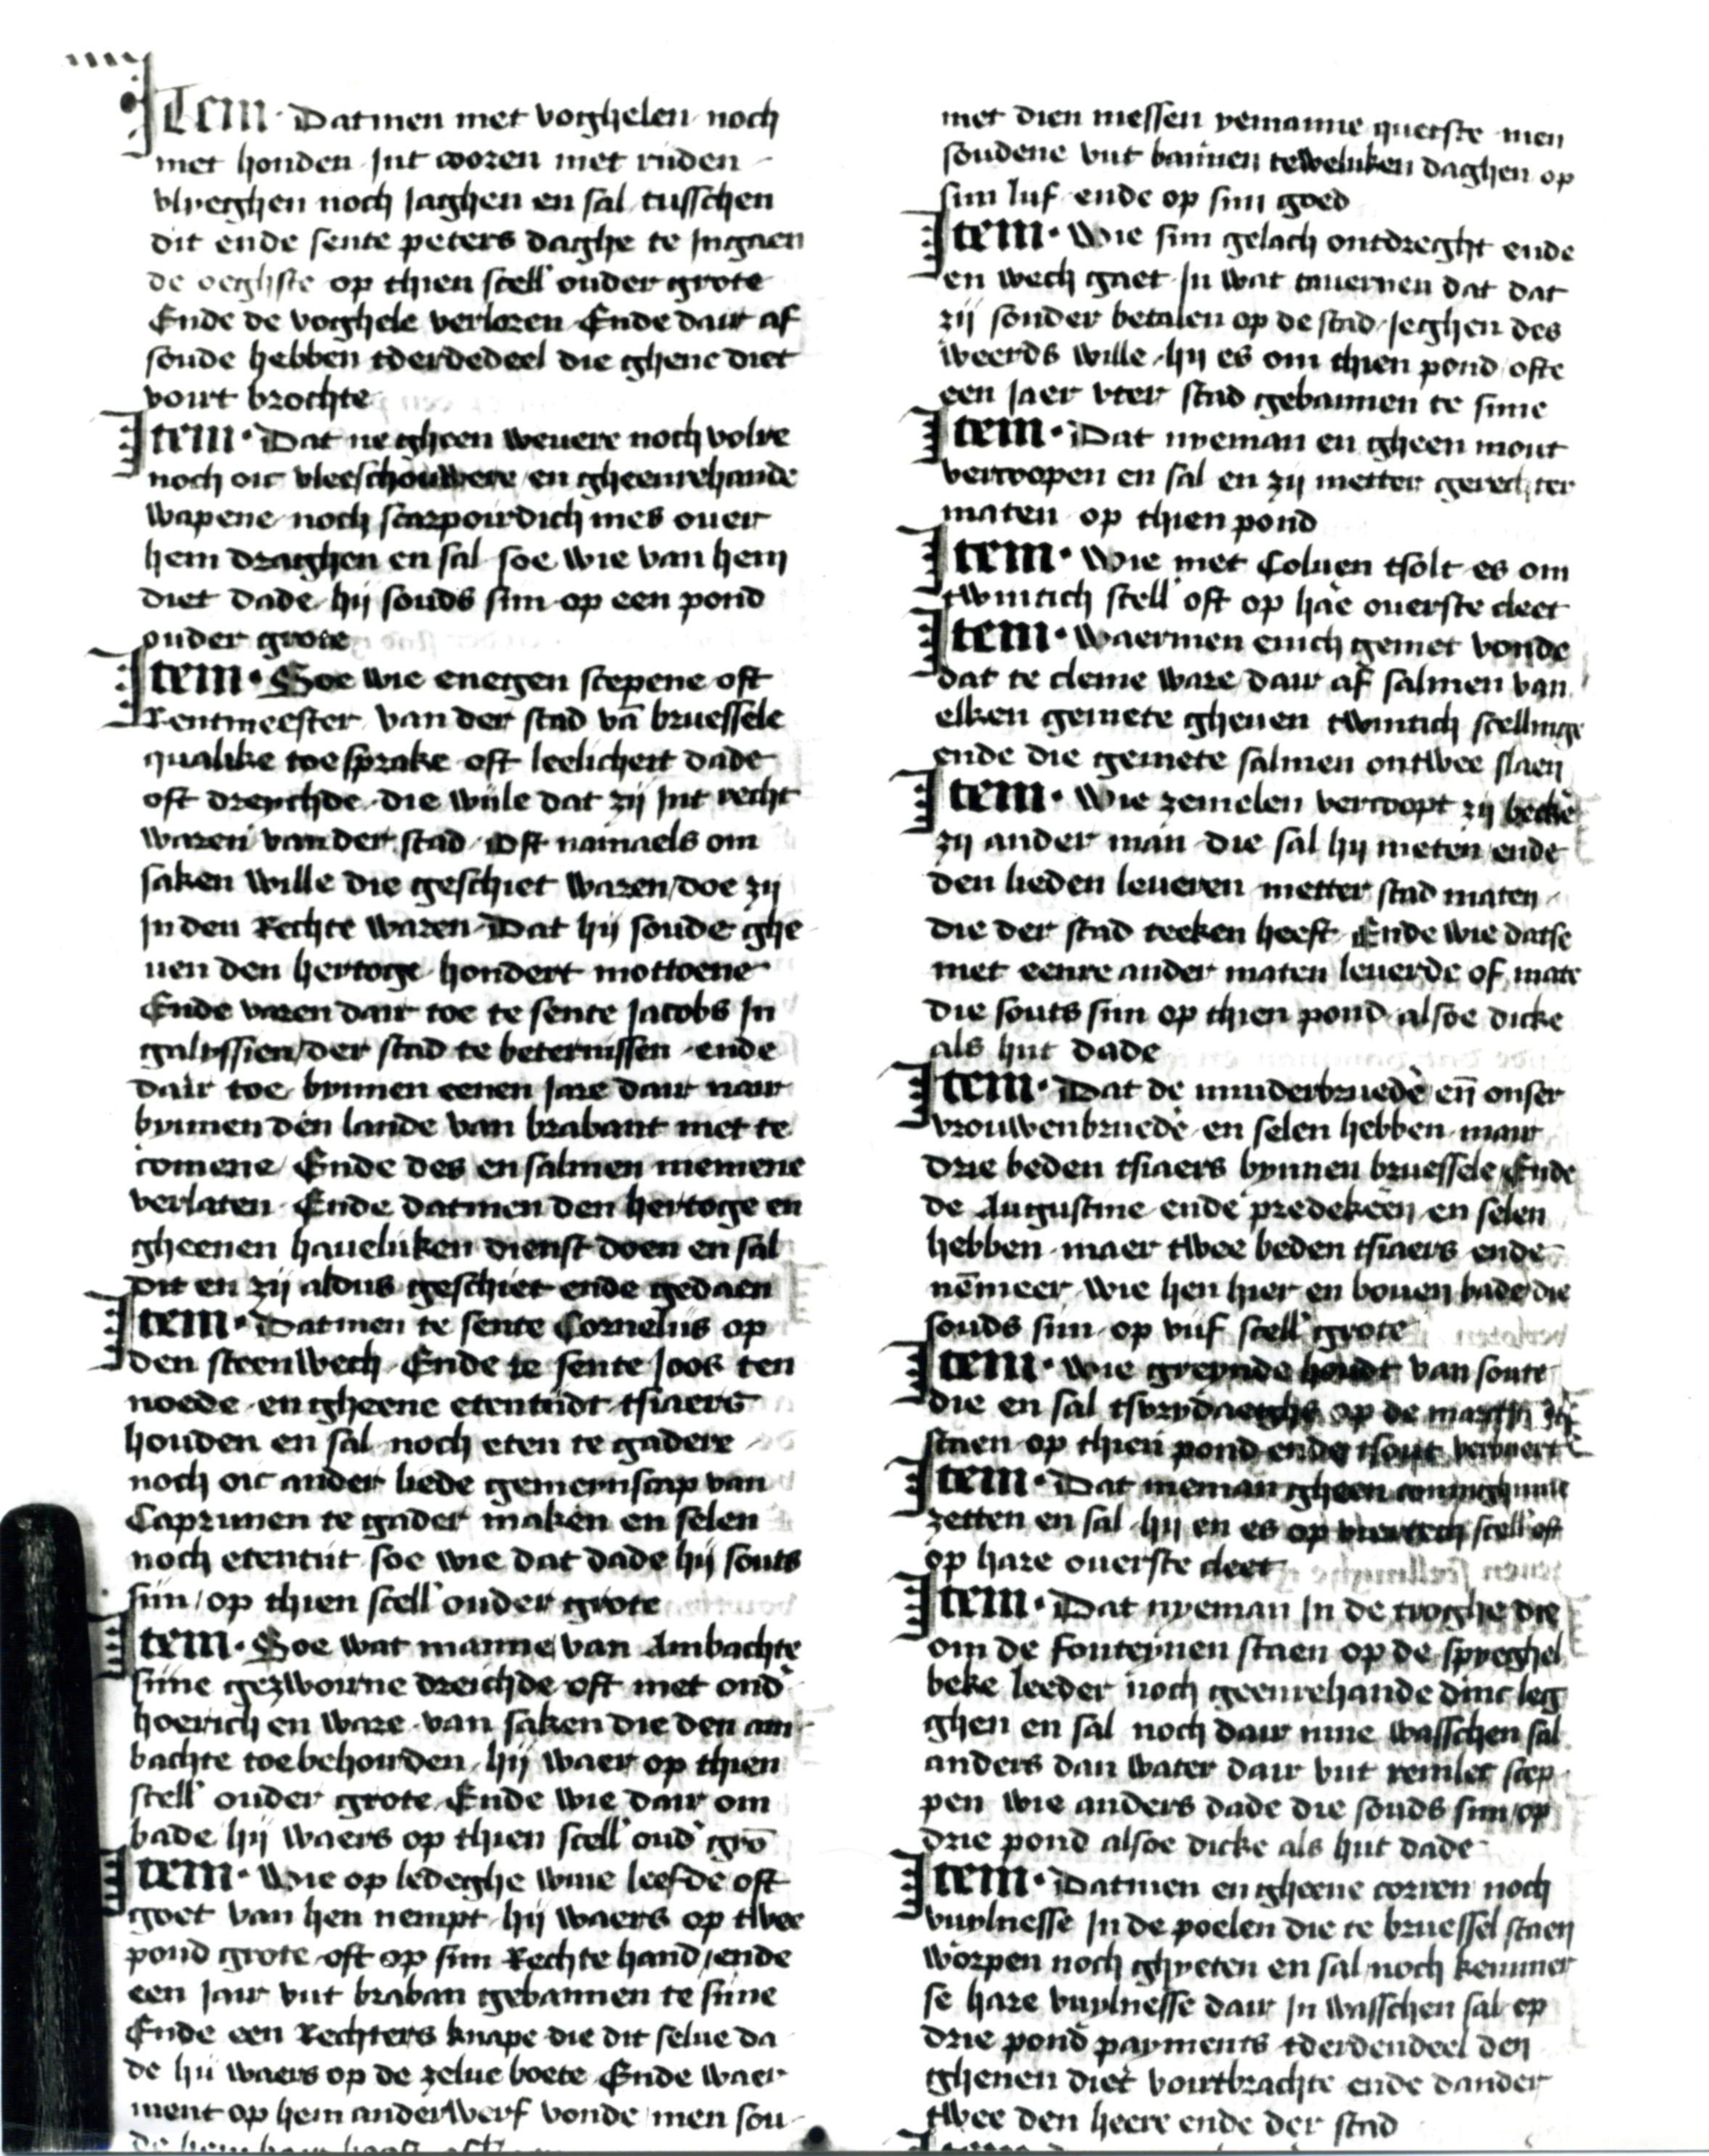 Item · Datmen met voghelen noch
met honden Int coren met ruden
vlieghen noch Jaghen en sal tusschen
dit ende sente peters daghe te Ingaen
de oeghste op thien scell' ouder grote
Ende de voghele verloren Ende dair af
soude hebben tderdedeel die ghene diet
voirt brochte
Item · Dat ne gheen wevere noch volre
noch oic vleeschouwere en gheenrehande
wapene noch scarpoirdich mes ouer
hem draghen en sal soe wie van hem
diet dade hij souds sijn op een pond
ouder grote
Item · Soe wie enegen scepene oft
Rentmeester van der stad vā bruessele
qualike toesprake oft leelicheit dade
oft dreychde die wile dat zij Int recht
waren van der stad Oft namaels om
saken wille die geschiet waren doe zij
In den Rechte waren Dat hij soude ghe
uen den hertoge hondert mottoene
Ende varen dair toe te sente Jacobs In
galissien der stad te beternissen ende
dair toe bynnen eenen Jare dair nair
bynnen den lande van brabant niet te
comene Ende des en salmen niemene
verlaten Ende datmen den hertoge en
gheenen hauelijken dienst doen en sal
dit en zij aldus geschiet ende gedaen
Item · Datmen te sente Cornelijs op
den steenwech Ende te sente Joos ten
noede en gheene etentijdt tsiaers
houden en sal noch eten te gadere
noch oic ander liede gemeynscap van
Caprunen te gader maken en selen
noch etentijt soe wie dat dade hij souts
sijn op thien scell' ouder grote
Item · Soe wat manne van Ambachte
sine gezwoirne dreichde oft met ond'
hoerich en ware van saken die den am
bachte toebehoirden hij waer op thien
scell' ouder grote Ende wie dair om
bade hij waers op thien scell' oud' grō
Item · Wie op ledeghe wiue leefde oft
goet van hen nempt hij waers op twee
pond grote oft op sijn Rechte hand ende
een Jair vut braban gebannen te sijne
Ende een Rechters knape die dit selue da
de hij waers op de zelue boete Ende waer
ment op hem anderwerf vonde men sou
met dien messen yemanne quetste men
soudene vut bannen teweliken daghen op
sijn lijf ende op sijn goed
Item · Wie sijn gelach ontdreght ende
en wech gaet In wat tauernen dat dat
zij sonder betalen op de stad Jeghen des
weerds wille hij es om thien pond ofte
een Jaer vter stad gebannen te sine
Item · Dat nyeman en gheen mout
vercoopen en sal en zij metter gerechter
maten op thien pond
Item · Wie met Coluen tsolt es om
twintich scell' oft op hāe ouerste cleet
Item · Waermen enich gemet vonde
dat te cleine ware dair af salmen van
elken gemete gheuen twintich scellinge
ende die gemete salmen ontwee slaen
Item · Wie zemelen vercoopt zij becke'
zij ander man die sal hij meten ende
den lieden leueren metter stad maten
die der stad teeken heeft Ende wie datse
met eenre ander maten leuerde of mate
die souts sijn op thien pond alsoe dicke
als hijt dade
Item · Dat de minderbruede' en̄ onser
vrouwenbruede' en selen hebben mair
drie beden tsiaers bynnen bruessele Ende
de Augustine ende predekeen en selen
hebben maer twee beden tsiaers ende
nēmeer wie hen hier en bouen bade die
souds sijn op vijf scell' grote
Item · Wie greynde houdt van soute
die en sal tsvrydaeghs op de
staen op thien pond ende tsout verbuert
Item · Dat nieman gheen
zetten en sal hij en es op viertech scell' oft
op hare ouerste cleet
Item · Dat nyeman In de troghe die
om de fonteynen staen op de spyeghel
beke leeder noch geenrehande dinc leg
ghen en sal noch dair inne wasschen sal
anders dan water dair vut scep
pen wie anders dade die souds sijn op
drie pond alsoe dicke als hijt dade
Item · Datmen en gheene corien noch
vuylnesse In de poelen die te bruessel staen
worpen noch ghyeten en sal noch kemmer
se hare vuylnesse dair In wasschen sal op
drie pond payments tderdendeel den
ghenen diet voirtbrachte ende dander
twee den heere ende der stad